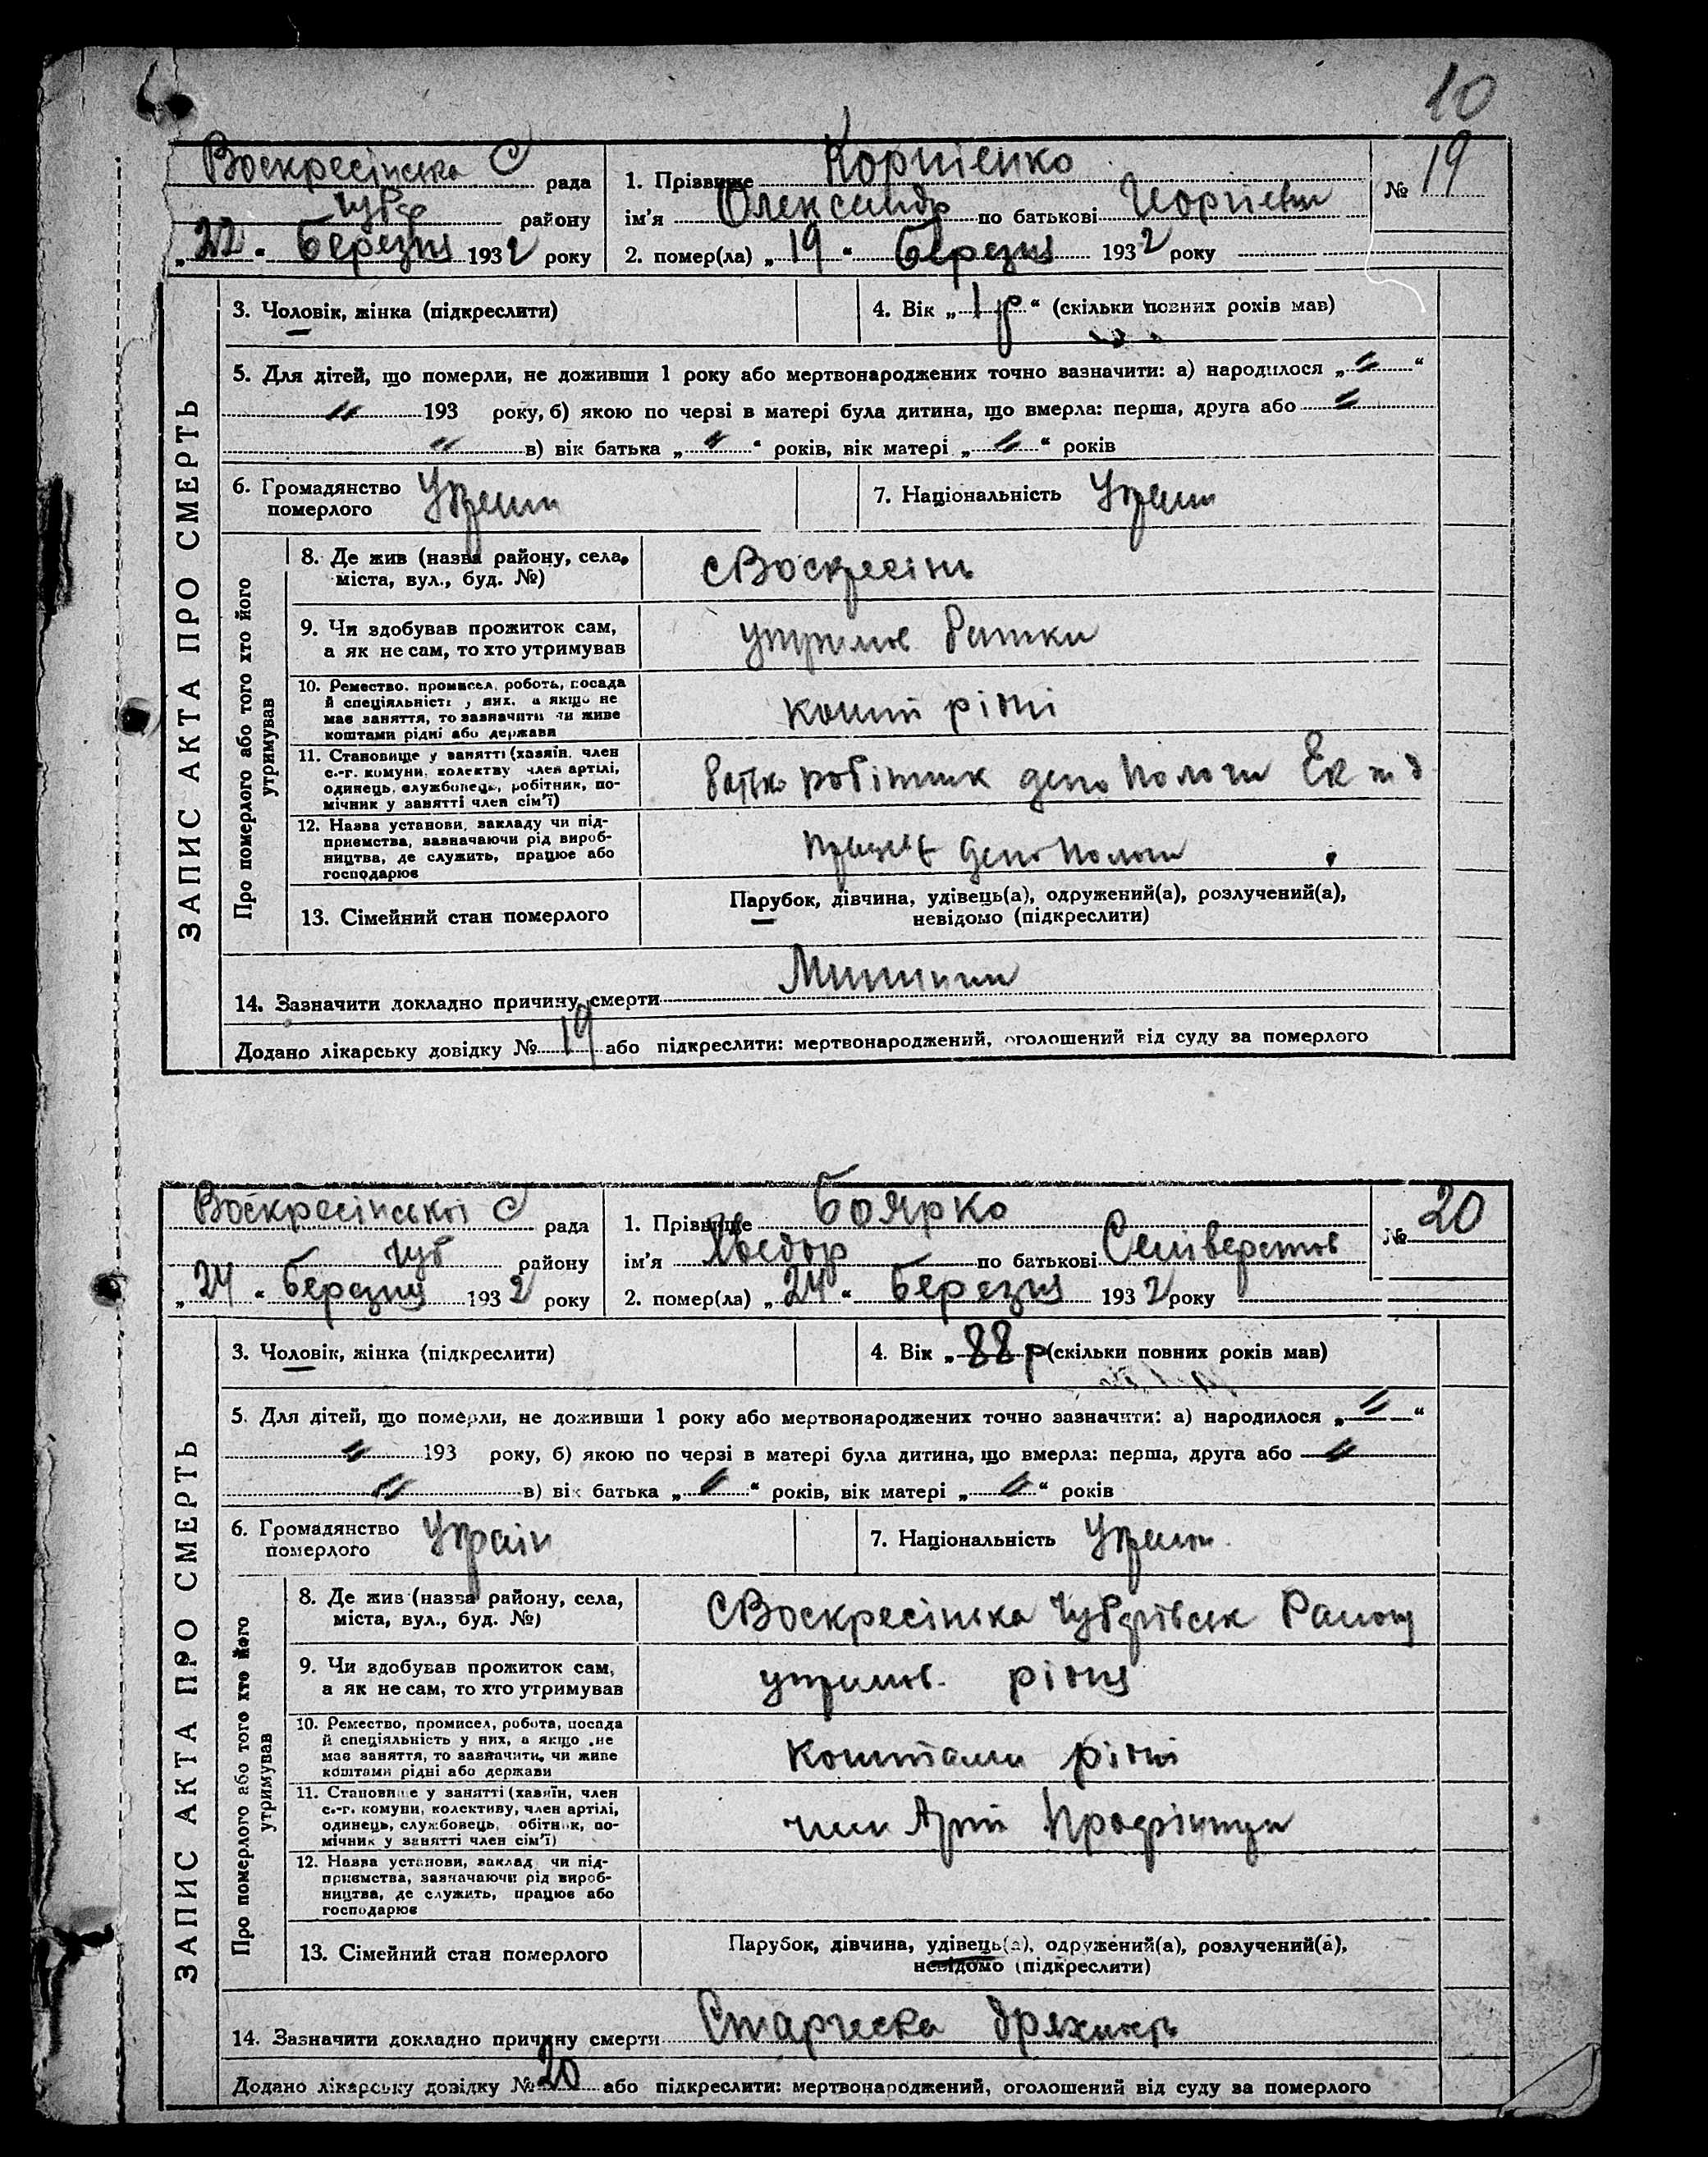 10
Воскресінська С рада
Чубар району
„22“ березня 1932 року
1. Прізвище Корнієнко
ім’я Олександр по батькові
2. помер(ла) „19“ березня 1932 року
№ 19
ЗАПИС АКТА ПРО СМЕРТЬ
3. Чоловік, жінка (підкреслити)
4. Вік „1 р“ (скільки повних років мав)
5. Для дітей, що померли, не доживши 1 року або мертвонароджених точно зазначити: а) народилося „〃“
〃 193 року, б) якою по черзі в матері була дитина, що вмерла: перша, друга або 〃
〃 в) вік батька „〃“ років, вік матері „〃“ років
6. Громадянство
померлого Украин
7. Національність Украин
Про померлого або того хто його
утримував
8. Де жив (назва району, села,
міста, вул., буд. №)
с Воскресінь
9. Чи здобував прожиток сам,
а як не сам, то хто утримував
утримов батьки
10. Ремество, промисел, робота, посада
й спеціяльність у них, а якщо не
має заняття, то зазначити чи живе
коштами рідні або держави
кошт рідні
11. Становище у занятті (хазяїн, член
с.-г. комуни, колективу, член артілі,
одинець, службовець, робітник, по-
мічник у занятті член сім’ї)
батько робітник депо Пологи Ек ж д
12. Назва установи, закладу чи під-
приємства, зазначаючи рід вироб-
ництва, де служить, працює або
господарює
працює депо Пологи
13. Сімейний стан померлого
Парубок, дівчина, удівець(а), одружений(а), розлучений(а),
невідомо (підкреслити)
14. Зазначити докладно причину смерти
Додано лікарську довідку № 19 або підкреслити: мертвонароджений, оголошений від суду за померлого
Воскресінської С рада
Чуб району
„24“ березня 1932 року
1. Прізвище Боярко
ім’я Хведор по батькові Селіверстов
2. помер(ла) „24“ березня 1932 року
№ 20
ЗАПИС АКТА ПРО СМЕРТЬ
3. Чоловік, жінка (підкреслити)
4. Вік „88 р (скільки повних років мав)
5. Для дітей, що померли, не доживши 1 року або мертвонароджених точно зазначити: а) народилося „〃“
〃 193 року, б) якою по черзі в матері була дитина, що вмерла: перша, друга або 〃
〃 в) вік батька „〃“ років, вік матері „〃“ років
6. Громадянство
померлого Україн
7. Національність Украин
Про померлого або того хто його
утримував
8. Де жив (назва району, села,
міста, вул., буд. №)
с Воскресінька Чубарівськ Району
9. Чи здобував прожиток сам,
а як не сам, то хто утримував
утримов. рідня
10. Ремество, промисел, робота, посада
й спеціяльність у них, а якщо не
має заняття, то зазначити, чи живе
коштами рідні або держави
коштами рідні
11. Становище у занятті (хазяїн, член
с.-г. комуни, колективу, член артілі,
одинець, службовець, робітник, по-
мічник у занятті член сім’ї)
член Арт Профінтерн
12. Назва установи, заклад чи під-
приємства, зазначаючи рід вироб-
ництва, де служить, працює або
господарює
13. Сімейний стан померлого
Парубок, дівчина, удівець(а), одружений(а), розлучений(а),
невідомо (підкреслити)
14. Зазначити докладно причину смерти Старческа дряхлость
Додано лікарську довідку № 20 або підкреслити: мертвонароджений, оголошений від суду за померлого